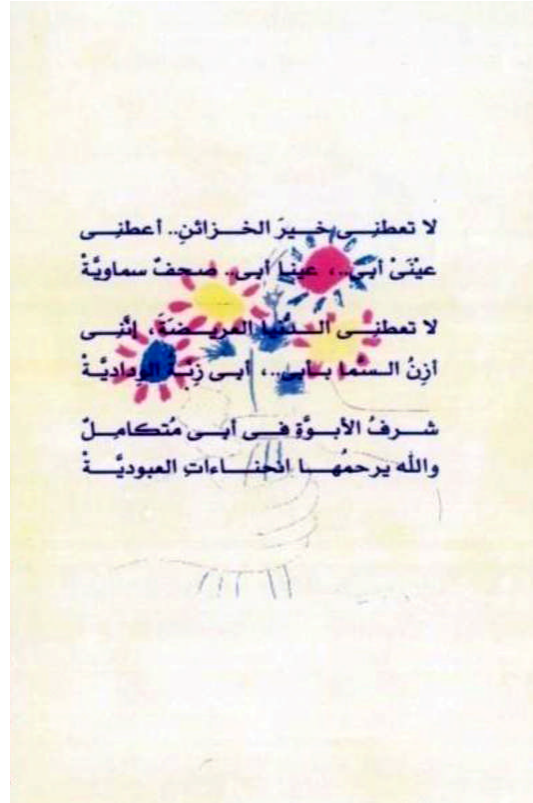 لا تعطنِى خيرَ الخزائنِ.. أعطنِى
عيْنَىْ أبى..، عينا أبى.. صحفٌ سماويَّةْ
لا تعطنِى الدُّنيا العريضةَ، إنَّنِى
أزِنُ السَّما بأبى..، أبى زِنَةُ الوداديَّةْ
شرفُ الأبوَّةِ فى أبى مُتكامِلٌ
والله يرحمُها انحناءاتِ العبوديَّةْ